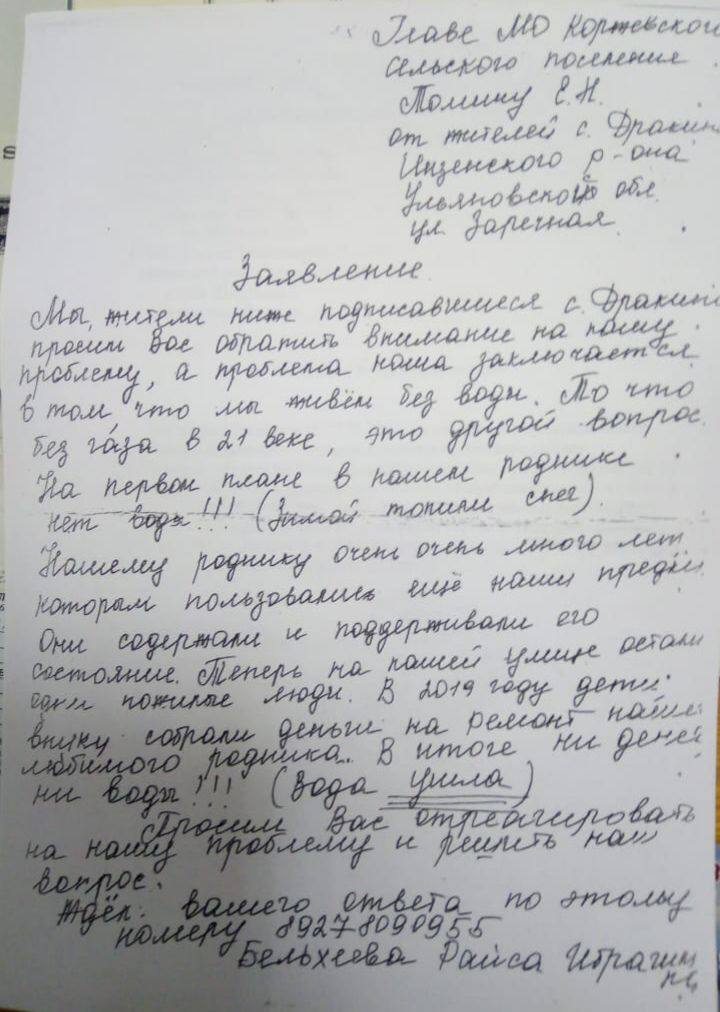 Главе МО Коржевского
сельского поселения
Томину Е.Н.
от жителей с. Дракин
Инзенского р-она
Ульяновской обл.
ул. Заречная.
Заявление.
Мы, жители ниже подписавшиеся с. Дракино
просим Вас обратить внимание на нашу
проблему, а проблема наша заключается
в том что мы живём без воды. То что
без газа в 21 веке, это другой вопрос.
На первом плане в нашем роднике
нет воды!!! (Зимой топили снег).
Нашему роднику очень очень много лет
которым пользовались ещё наши предки
Они содержали и поддерживали его
состояние. Теперь на нашей улице остали
одни пожилые люди. В 2019 году дети
внуки собрали деньги на ремонт нашего
любимого родника. В итоге ни денег
ни воды!!! (Вода ушла)
Просим Вас отреагировать
на нашу проблему и решить наш
вопрос.
Ждём вашего ответа по этому
номеру 89278090955
Бельхеева Раиса Ибрагим